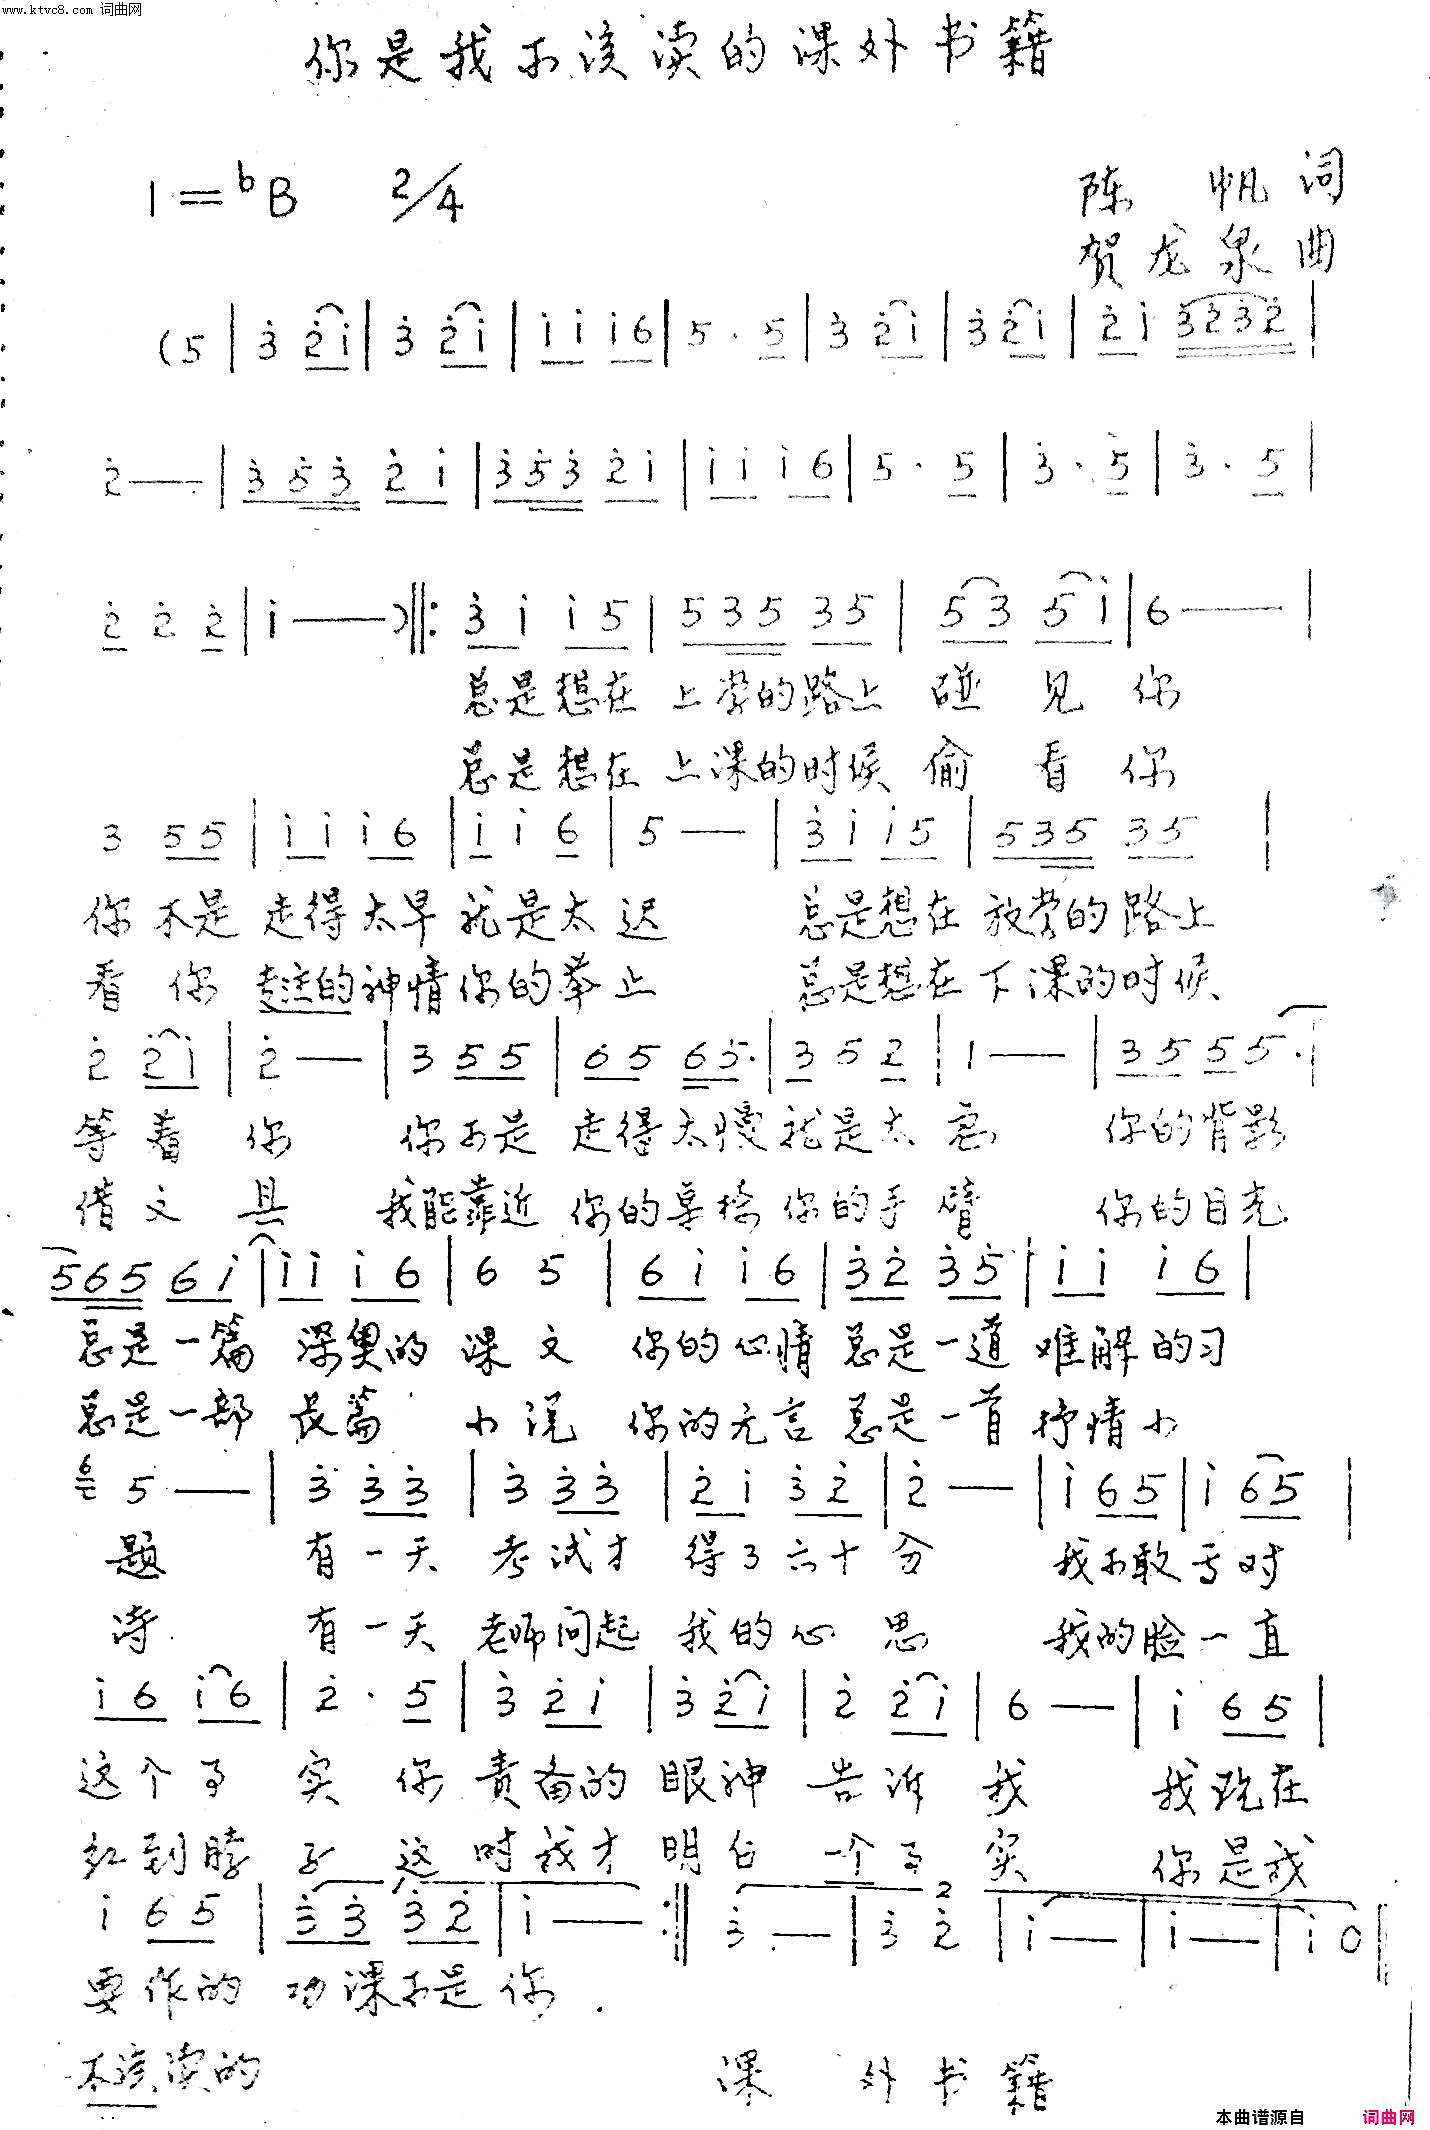 www.ktvc8.com 词曲网
你是我不该读的课外书籍
1=bB 2/4
陈 帆 词
贺龙泉 曲
(5 | 3 2 1 | 3 2 1 | 1 1 1 6 | 5 · 5 | 3 2 1 | 3 2 1 | 2 1 3 2 3 2 |
2 — | 3 5 3 2 1 | 3 5 3 2 1 | 1 1 1 6 | 5 · 5 | 3 · 5 | 3 · 5 |
2 2 2 | 1 — ) ‖: 3 1 1 5 | 5 3 5 3 5 | 5 3 5 1 | 6 — |
总是想在 上学的路上 碰 见 你
总是想在 上课的时候 偷 看 你
3 5 5 | 1 1 1 6 | 1 1 6 | 5 — | 3 1 1 5 | 5 3 5 3 5 |
你 不是 走得太早 就是太 迟 总是想在 放学的路上
看 你 的神情 你的举止 总是想在 下课的时候
2 2 1 | 2 — | 3 5 5 | 6 5 6 5 · | 3 5 2 | 1 — | 3 5 5 5 · |
等 着 你 你不是 走得太慢 就是太 急 你的背影
借 文 具 我能靠近 你的桌椅 你的手 臂 你的目光
5 6 5 6 1 | 1 1 1 6 | 6 5 | 6 1 1 6 | 3 2 3 5 | 1 1 1 6 |
总是一篇 深奥的 课 文 你的心情 总是一道 难解的习
总是一部 长篇 小 说 你的无言 总是一首 抒情小
6 5 — | 3 3 3 | 3 3 3 | 2 1 3 2 | 2 — | 1 6 5 | 1 6 5 |
题 有 一 天 考 试 才 得了六十 分 我不敢 面 对
诗 有 一 天 老师问起 我的心 思 我的脸 一 直
1 6 1 6 | 2 · 5 | 3 2 1 | 3 2 1 | 2 2 1 | 6 — | 1 6 5 |
这 个 事 实 你 责 备的 眼 神 告 诉 我 我 现在
红到脖 子 这 时 我才 明 白 一个 事 实 你 是我
1 6 5 | 3 3 3 2 | 1 — :‖ 3 — | 3 2 | 1 — | 1 — | 1 0 ‖
要 作的 功课不是 你 .
不该读的 课 外 书 籍
本曲谱源自 词曲网